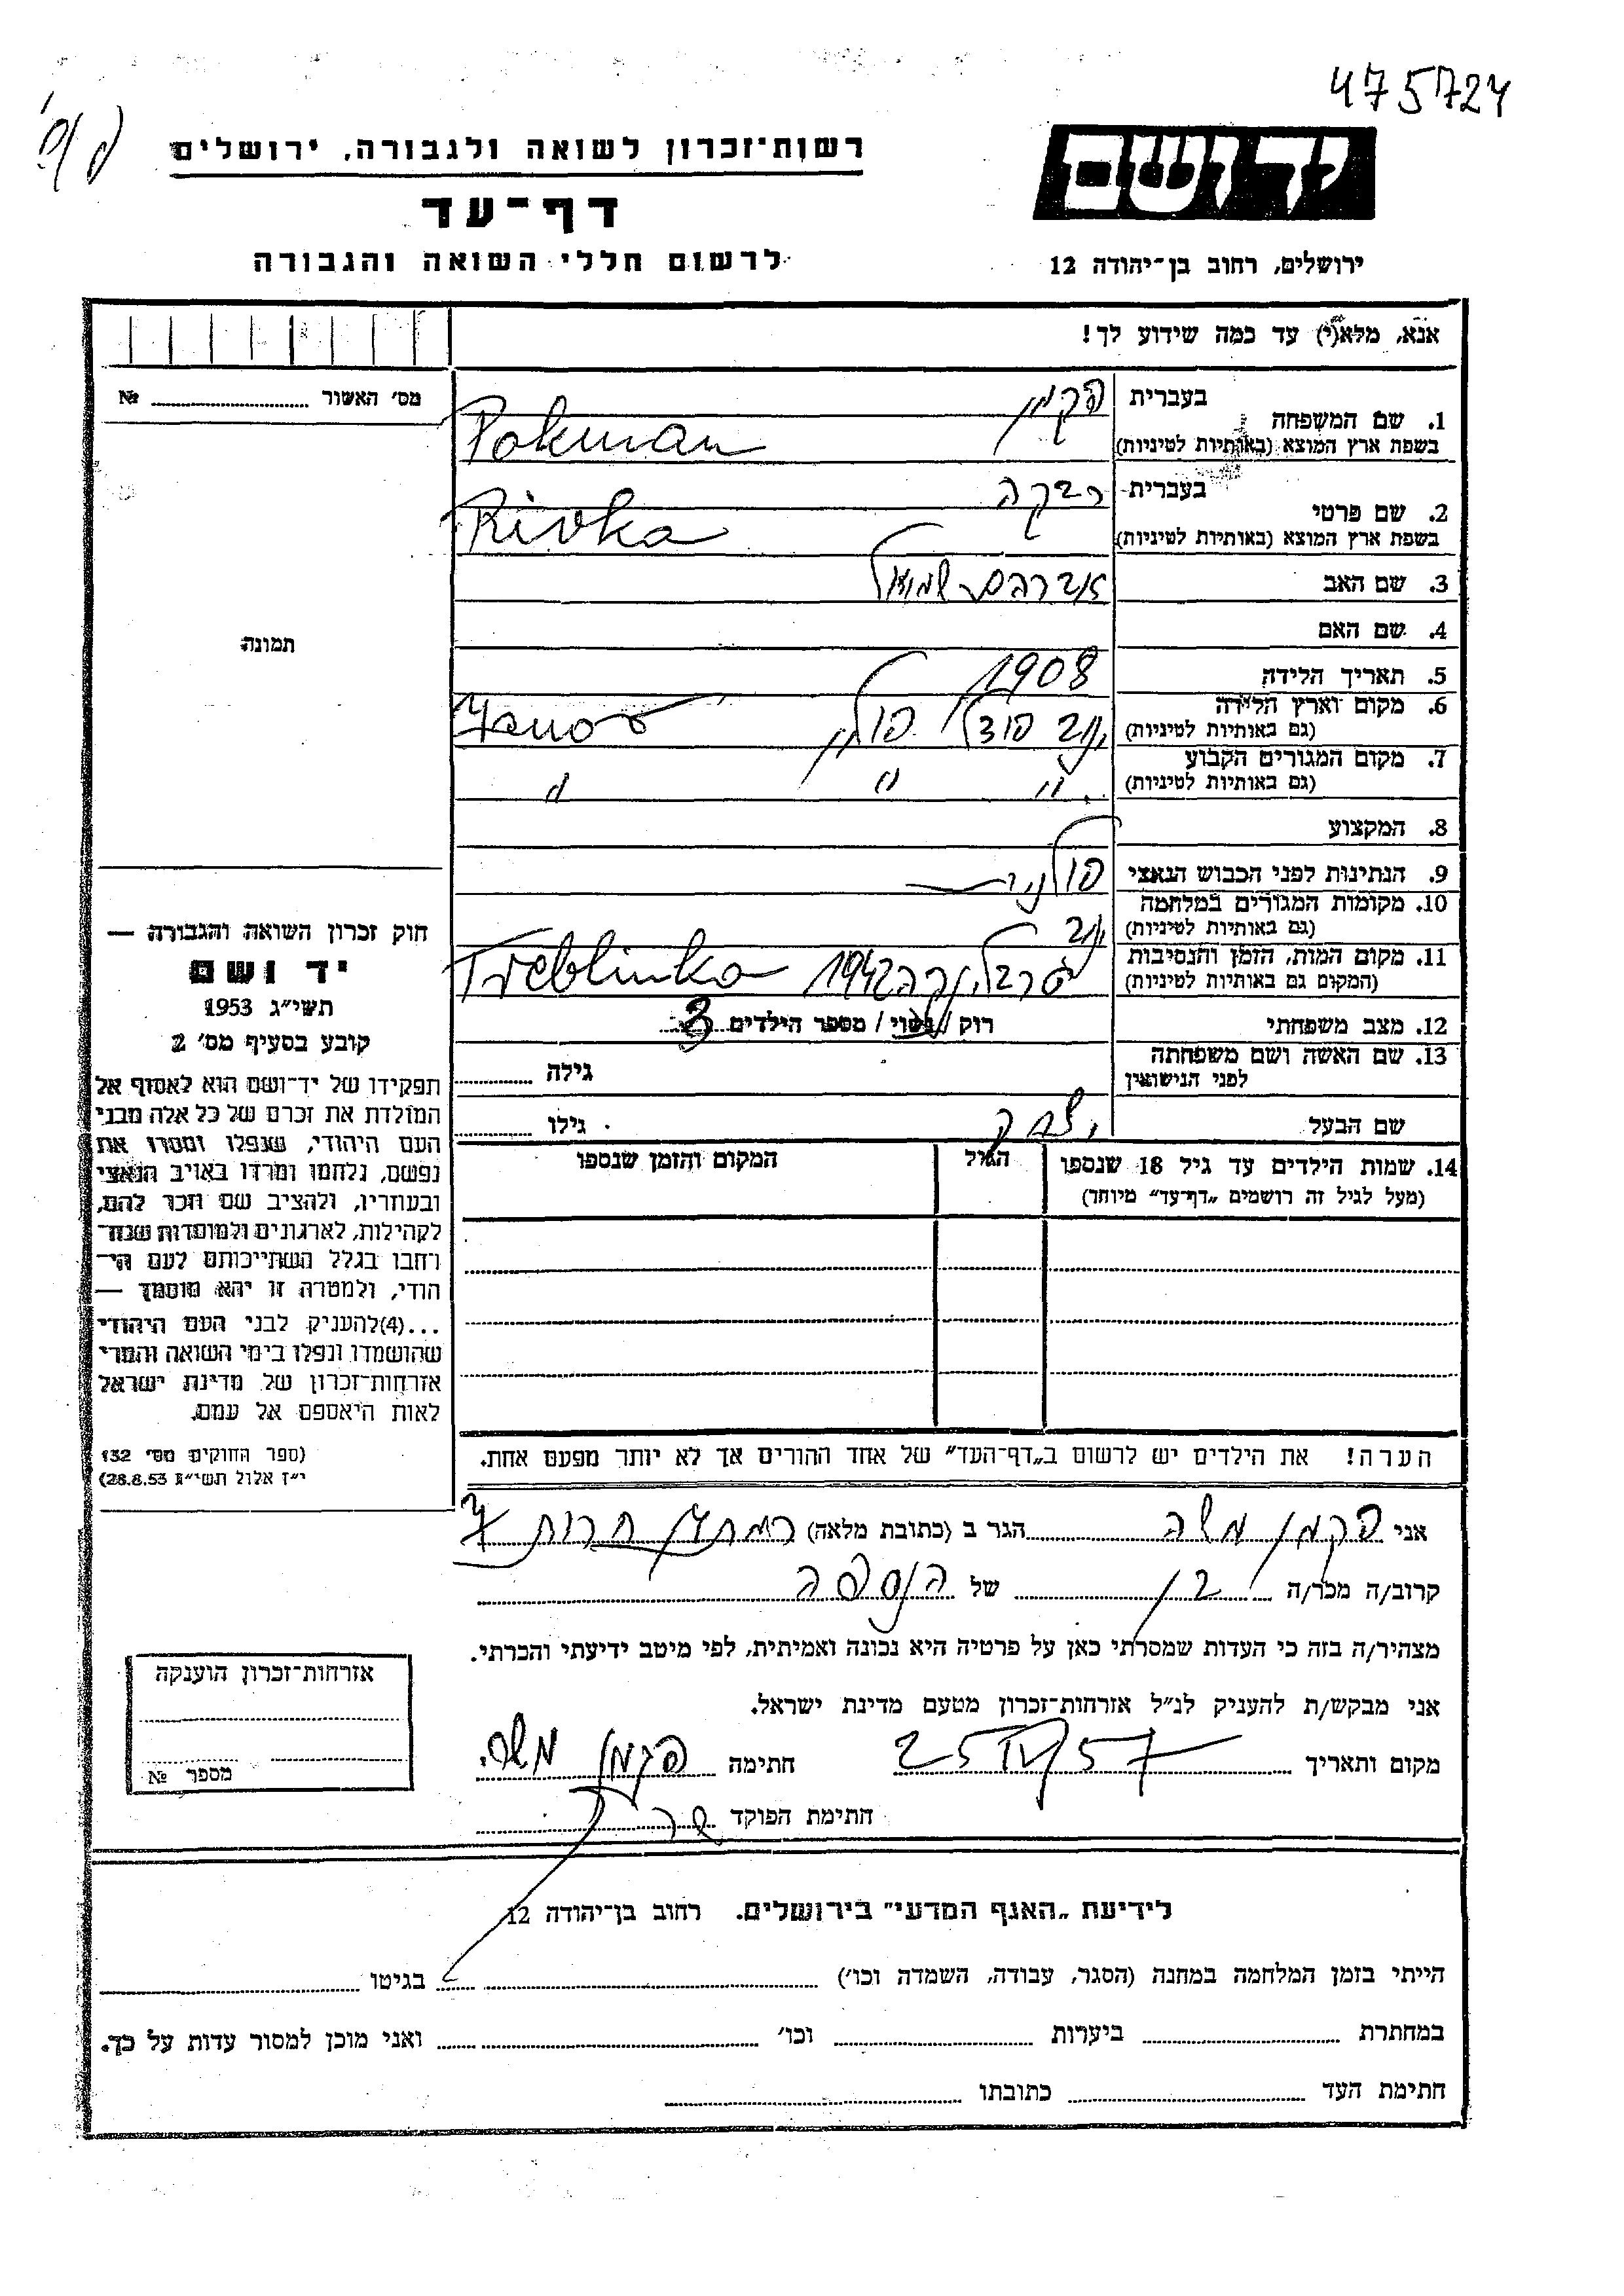 475724
רשות־זכרון לשואה ולגבורה, ירושלים
דף־עד
לרשום חללי השואה והגבורה
יד ושם
ירושלים, רחוב בן־יהודה 12
אנא, מלא(י) עד כמה שידוע לך!
מס׳ האשור № 
1. שם המשפחה
בעברית פקמן
בשפת ארץ המוצא (באותיות לטיניות) Pokman
2. שם פרטי
בעברית רבקה
בשפת ארץ המוצא (באותיות לטיניות) Rivka
3. שם האב אברהם שמואל
4. שם האם
5. תאריך הלידה 1908
6. מקום וארץ הלידה
(גם באותיות לטיניות) ינוב פודל פולין Janov
7. מקום המגורים הקבוע
(גם באותיות לטיניות) " " "
8. המקצוע
9. הנתינות לפני הכבוש הנאצי פולנית
10. מקומות המגורים במלחמה
(גם באותיות לטיניות) ינוב
11. מקום המות, הזמן והנסיבות
(המקום גם באותיות לטיניות) טרבלינקה 1942 Treblinka
12. מצב משפחתי רוק / נשוי / מספר הילדים 3
13. שם האשה ושם משפחתה
לפני הנישואין גילה
שם הבעל יצחק גילו
14. שמות הילדים עד גיל 18 שנספו
(מעל לגיל זה רושמים „דף־עד״ מיוחד)
הגיל
המקום והזמן שנספו
הערה! את הילדים יש לרשום ב„דף־העד״ של אחד ההורים אך לא יותר מפעם אחת.
תמונה
חוק זכרון השואה והגבורה —
יד ושם
תשי״ג 1953
קובע בסעיף מס׳ 2
תפקידו של יד־ושם הוא לאסוף אל
המולדת את זכרם של כל אלה מבני
העם היהודי, שנפלו ומסרו את
נפשם, נלחמו ומרדו באויב הנאצי
ובעוזריו, ולהציב שם וזכר להם,
לקהילות, לארגונים ולמוסדות שנח־
רחבו בגלל השתייכותם לעם הי־
הודי, ולמטרה זו יהא מוסמך —
...(4)להעניק לבני העם היהודי
שהושמדו ונפלו בימי השואה והמרי
אזרחות־זכרון של מדינת ישראל
לאות היאספם אל עמם.
(ספר החוקים מס׳ 132
י״ז אלול תשי״ג 28.8.53)
אני פקמן משה הגר ב (כתובת מלאה)
קרוב/ה מכר/ה בן של הנספה
מצהיר/ה בזה כי העדות שמסרתי כאן על פרטיה היא נכונה ואמיתית, לפי מיטב ידיעתי והכרתי.
אני מבקש/ת להעניק לנ״ל אזרחות־זכרון מטעם מדינת ישראל.
מקום ותאריך 25 IV 57 חתימה פקמן משה
חתימת הפוקד
אזרחות־זכרון הוענקה
מספר №
לידיעת „האגף המדעי״ בירושלים. רחוב בן־יהודה 12
הייתי בזמן המלחמה במחנה (הסגר, עבודה, השמדה וכו׳) בגיטו
במחתרת ביערות וכו׳ ואני מוכן למסור עדות על כך.
חתימת העד כתובתו